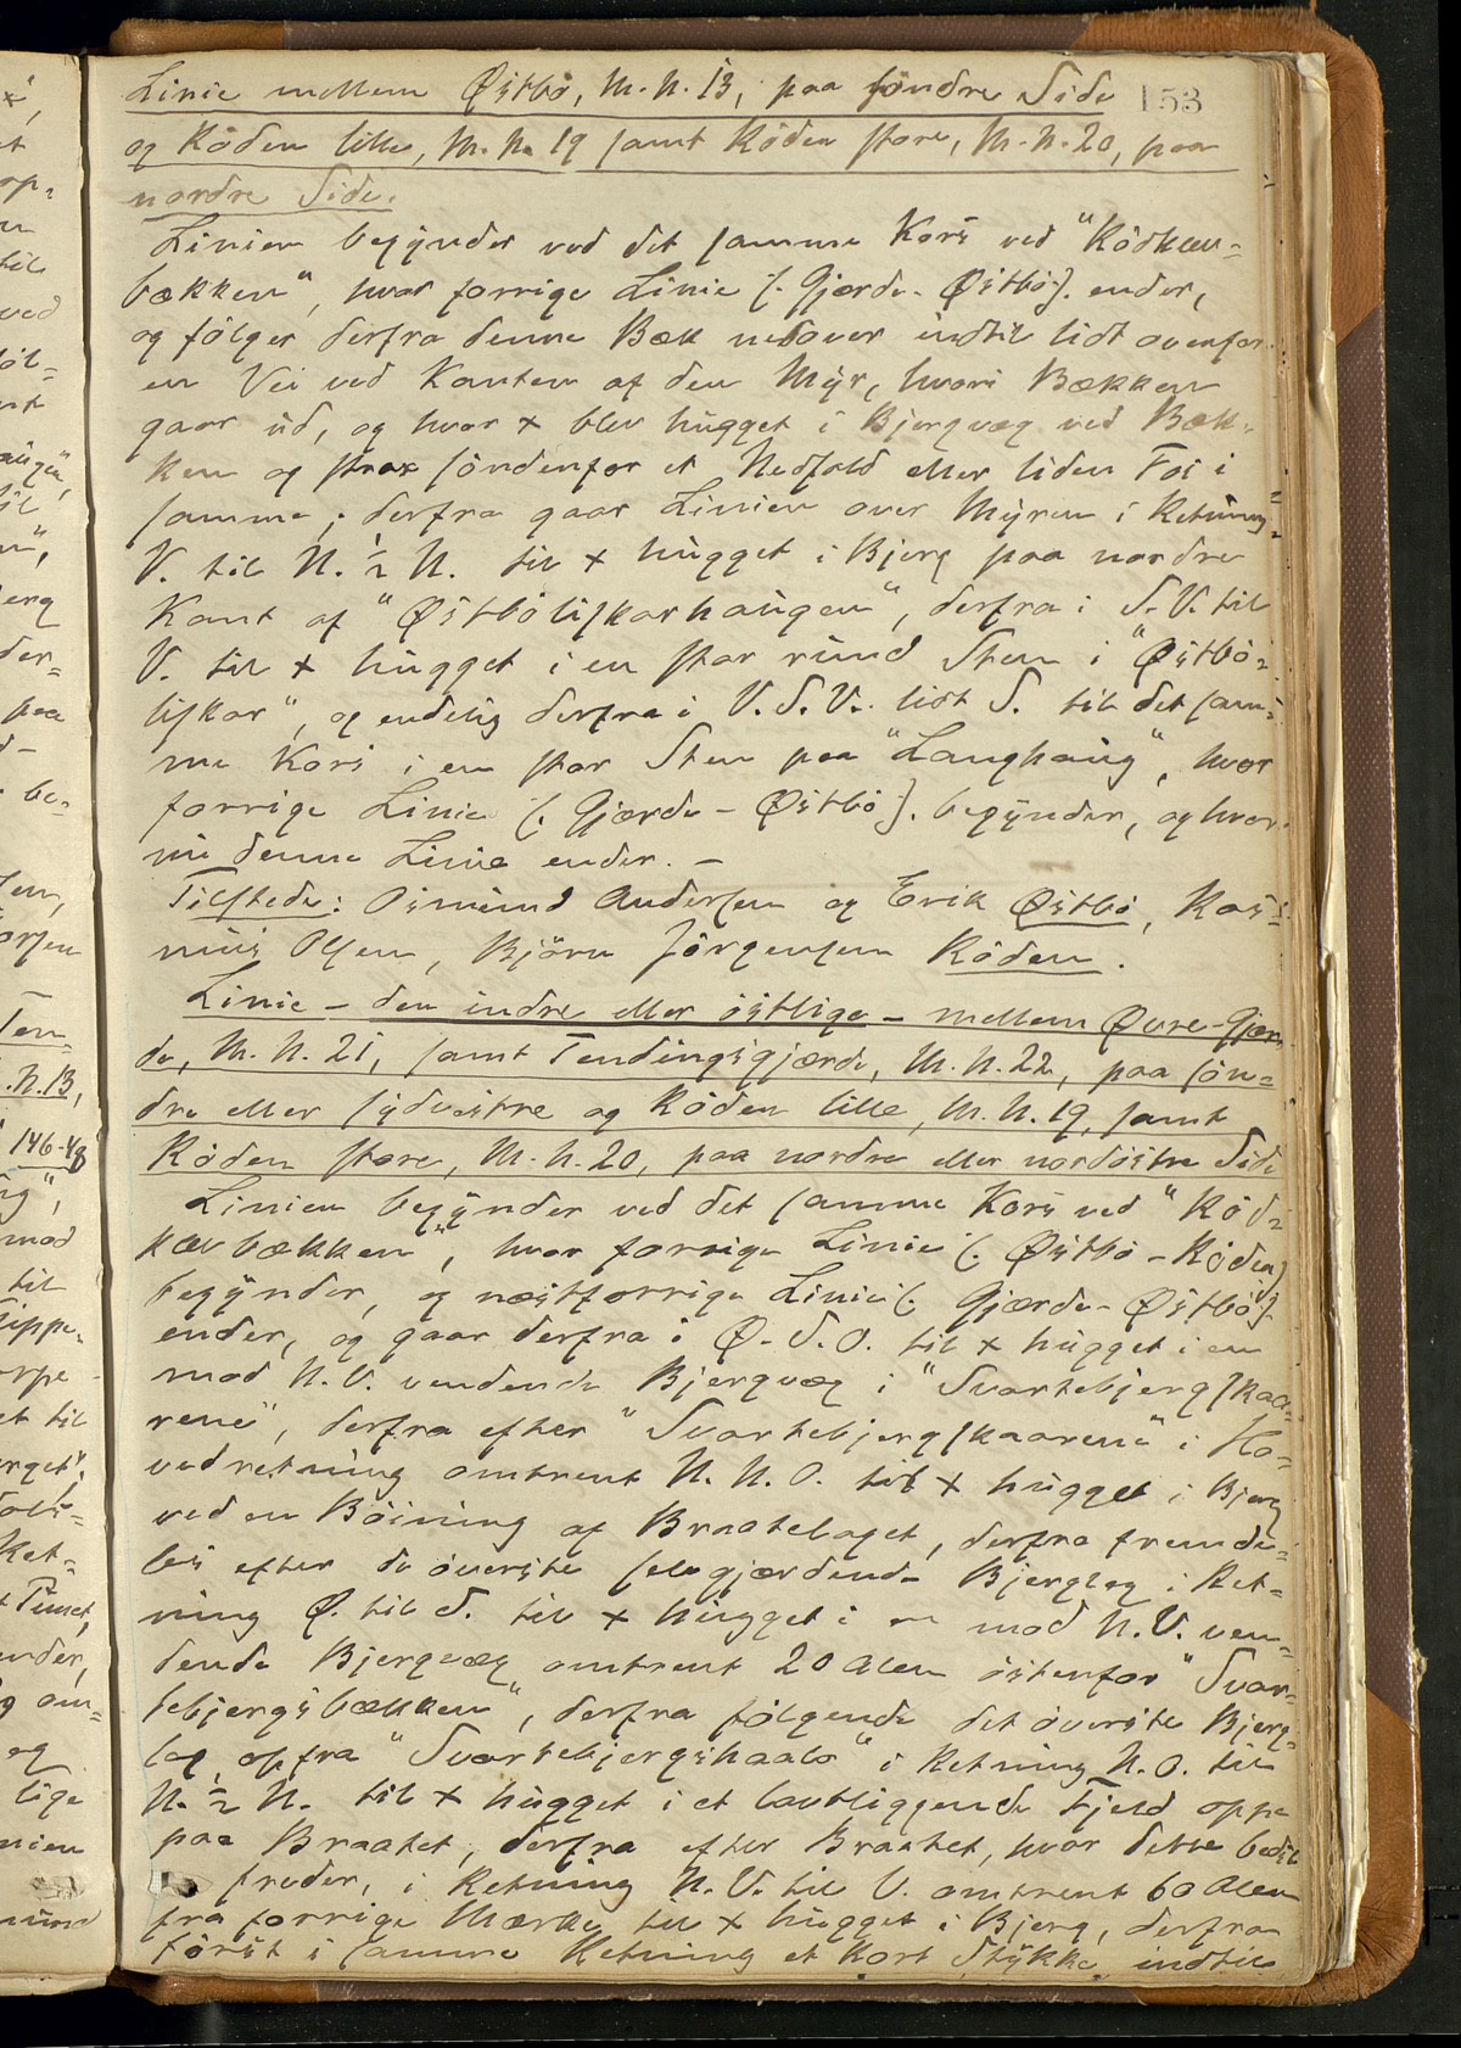 Linie mellem Østbö, M. N. 13, paa söndre Side 153
og Röden lille, M. N. 19 samt Röden store, M. N. 20, paa
nordre Side.
Linien begynder ved det samme Kors ved "Rödkleu-
bækken", hvor forrige Linie (: Gjerde - Østbö :) ender,
og fölger derfra denne Bæk nedover indtil lidt ovenfor
en Vei ved Kanten af den Myr, hvori Bækken
gaar ud, og hvor + blev hugget i Bjergvæg ved Bæk-
ken og strax söndenfor et Nedfald eller liden Fos i
samme; derfra gaar Linien over Myren i Retning
V. til N. ½ N. til + hugget i Bjerg paa nordre
Kant af "Østbölifkarhaugen", derfra i S. V. til
V. til + hugget i en stor rund Sten i "Østbö-
lifkar", og endelig derfra i V. S. V. lidt S. til det sam-
me Kors i en stor Sten paa "Langhaug", hvor
forrige Linie (: Gjerde - Østbö :) begynder, og hvor
nu denne Linie ender. -
Tilstede: Osmund Andersen og Erik Østbö, Ras-
mus Olsen, Björn Jörgensen Röden.
Linie - den indre eller östlige - mellem Øvre-Gjær-
de, M. N. 21, samt Tendingsgjærde, M. N. 22, paa sön-
dre eller sydvestre og Röden lille, M. N. 19, samt
Röden store, M. N. 20, paa nordre eller nordöstre Side
Linien begynder ved det samme Kors ved "Röd-
kleubækken", hvor forrige Linie (: Østbö - Röden)
begynder, og næstforrige Linie (: Gjærde - Østbö :)
ender, og gaar derfra i Ø. S. O. til + hugget i en
mod N. V. vendende Bjergvæg i "Svartebjergskaa-
rene", derfra efter "Svartebjergskaarene" i Ho-
vedretning omtrent N. N. O. til + hugget i Bjerg
ved en Böining af Braatelaget, derfra fremde-
les efter de överste selvgjærdende Bjerglag i Ret-
ning Ø. til S. til + hugget i en mod N. V. ven-
dende Bjergvæg omtrent 20 Alen östenfor "Svar-
tebjergsbækken", derfra fölgende det överste Bjerg-
lag op fra "Svartebjergshaals" i Retning N. O. til
N. ½ N. til + hugget i et lavtliggende Fjeld oppe
paa Braatet, derfra efter Braatet, hvor dette bedst
freder, i Retning N. V. til V. omtrent 60 Alen
fra forrige Mærke til + hugget i Bjerg, derfra
först i samme Retning et kort Stykke indtil